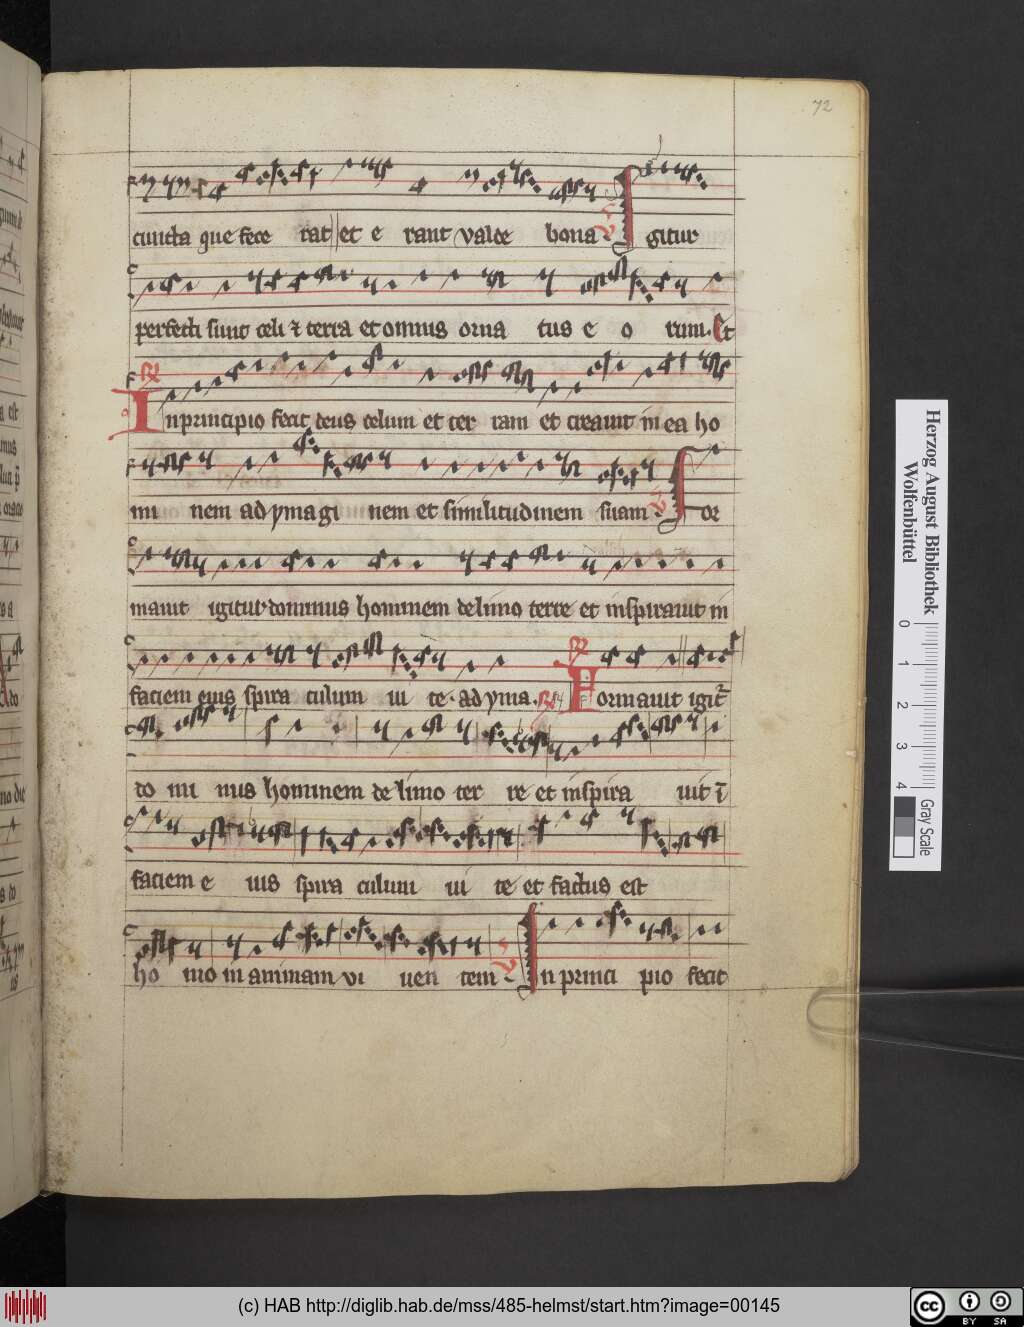 72
cuncta que fece rat et e rant valde bona V Igitur
perfecti sunt celi et terra et omnis orna tus e o rum. Et
R
In principio fecit deus celum et ter ram et creavit in ea ho
mi nem ad ymagi nem et similitudinem suam V For
mauit igitur dominus hominem de limo terre et inspirauit in
R
faciem eius spira culum ui te. ad yma. R Formauit igit
do mi nus hominem de limo ter re et inspira uit ī
faciem e ius spira culum ui te et factus est
ho mo in animam vi uen tem V In princi pio fecit
Herzog August Bibliothek
Wolfenbüttel
0 1 2 3 4
Gray Scale
(c) HAB http://diglib.hab.de/mss/485-helmst/start.htm?image=00145
cc BY SA